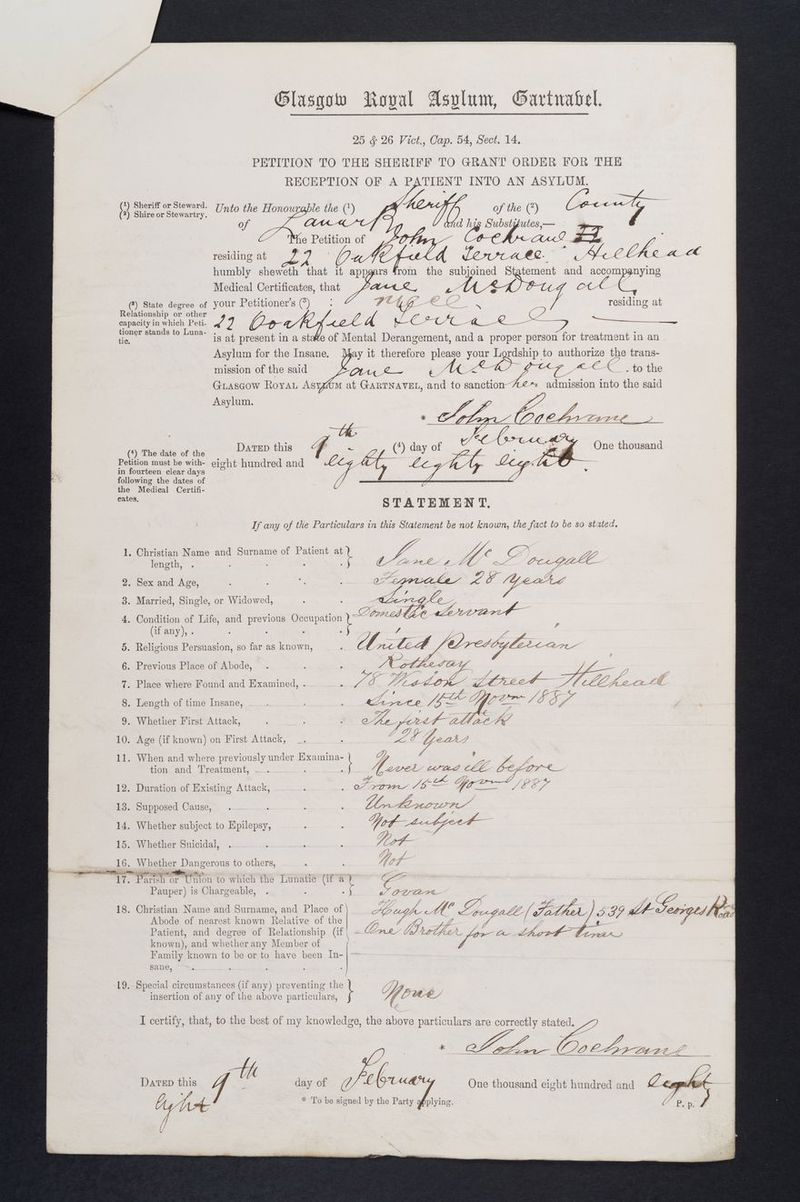 Glasgow Royal Asylum, Gartnavel.
25 & 26 Vict., Cap. 54, Sect. 14.
PETITION TO THE SHERIFF TO GRANT ORDER FOR THE
RECEPTION OF A PATIENT INTO AN ASYLUM.
(1) Sheriff or Steward.
(2) Shire or Stewartry.
Unto the Honourable the (1) Sheriff of the (2) County
of Lanark and his Substitutes,—
The Petition of John Cochrane
residing at 22 Oakfield Terrace Hillhead
humbly sheweth that it appears from the subjoined Statement and accompanying
Medical Certificates, that Jane McDougall
(3) State degree of
Relationship or other
capacity in which Peti-
tioner stands to Luna-
tic.
your Petitioner's (3) : niece residing at
22 Oakfield Terrace
is at present in a state of Mental Derangement, and a proper person for treatment in an
Asylum for the Insane. May it therefore please your Lordship to authorize the trans-
mission of the said Jane McDougall . to the
GLASGOW ROYAL ASYLUM at GARTNAVEL, and to sanction her admission into the said
Asylum.
* John Cochrane
(4) The date of the
Petition must be with-
in fourteen clear days
following the dates of
the Medical Certifi-
cates.
DATED this 9th (4) day of February One thousand
eight hundred and eighty eighty eight.
STATEMENT.
If any of the Particulars in this Statement be not known, the fact to be so stated.
1. Christian Name and Surname of Patient at
length, . . . . . Jane Mc Dougall
2. Sex and Age, . . . . Female 28 Years
3. Married, Single, or Widowed, . . Single
4. Condition of Life, and previous Occupation
(if any), . . . . . Domestic Servant
5. Religious Persuasion, so far as known, . United Presbyterian
6. Previous Place of Abode, . . . Rothesay
7. Place where Found and Examined, . . 78 Street Hillhead
8. Length of time Insane, . . . Since 15th Novm 1887
9. Whether First Attack, . . . The first attack
10. Age (if known) on First Attack, . . 28 Years
11. When and where previously under Examina-
tion and Treatment, . . . Never was ill before
12. Duration of Existing Attack, . . From 15th Novm 1887
13. Supposed Cause, . . . . Unknown
14. Whether subject to Epilepsy, . . Not subject
15. Whether Suicidal, . . . . Not
16. Whether Dangerous to others, . . Not
17. Parish or Union to which the Lunatic (if a
Pauper) is Chargeable, . . . Govan
18. Christian Name and Surname, and Place of
Abode of nearest known Relative of the
Patient, and degree of Relationship (if
known), and whether any Member of
Family known to be or to have been In-
sane, . . . . .
Hugh Mc Dougall (Father) 539 St Georges Road
One Brother for a short time
19. Special circumstances (if any) preventing the
insertion of any of the above particulars, None
I certify, that, to the best of my knowledge, the above particulars are correctly stated.
* John Cochrane
DATED this 9th day of February One thousand eight hundred and eighty
eight
* To be signed by the Party applying.
P. p.